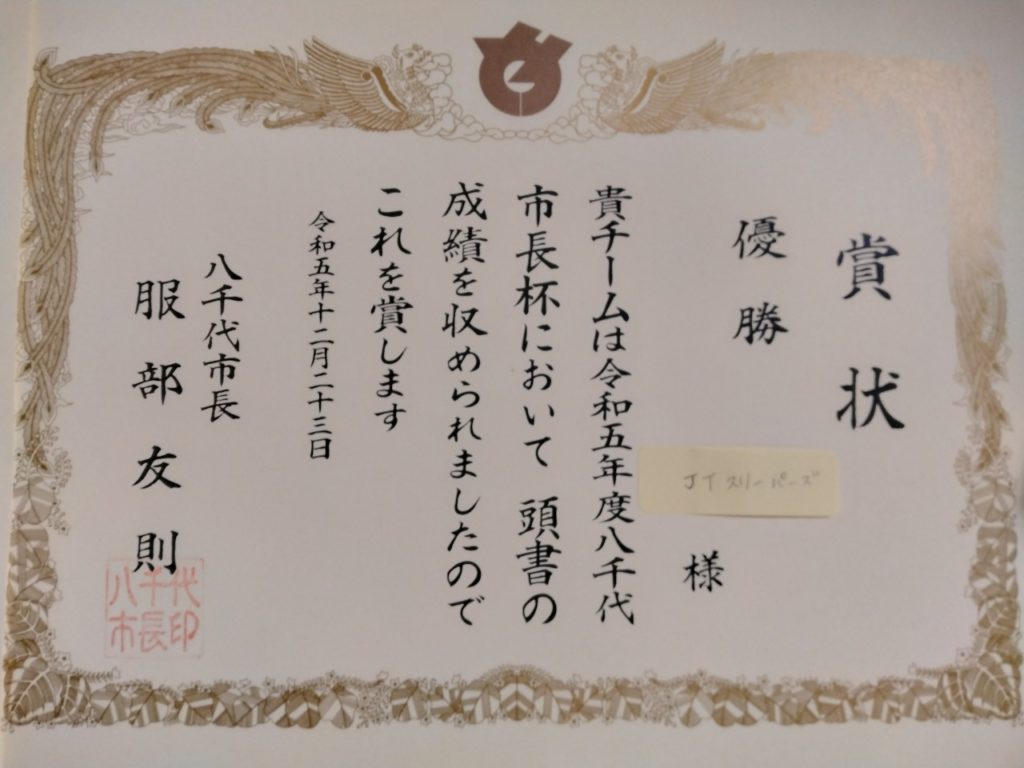 賞状
優勝
JTスリーパーズ
様
貴チームは令和五年度八千代
市長杯において 頭書の
成績を収められましたので
これを賞します
令和五年十二月二十三日
八千代市長
服部友則
八千代
市長印